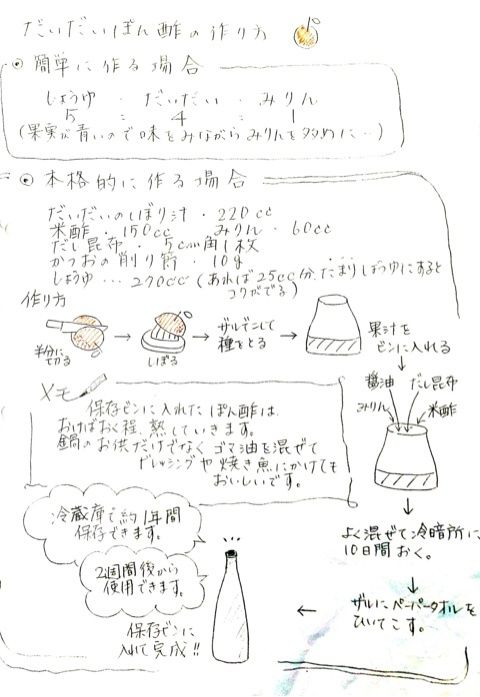 だいだいぽん酢の作り方
◎ 簡単に作る場合
しょうゆ ・ だいだい ・ みりん
5 : 4 : 1
(果実が青いので味をみながらみりんを多めに…)
◎ 本格的に作る場合
だいだいのしぼり汁・220cc
米酢・150cc みりん・60cc
だし昆布・5cm角1枚
かつおの削り節・10g
しょうゆ…270cc(あれば25cc分、たまりしょうゆにすると
コクがでる)
作り方
半分に
切る
→
しぼる
→
ザルでこして
種をとる
→
果汁を
ビンに入れる
醤油
だし昆布
みりん
米酢
よく混ぜて冷暗所に
10日間おく。
ザルにペーパータオルを
ひいてこす。
保存ビンに
入れて完成!!
2週間後から
使用できます。
冷蔵庫で約1年間
保存できます。
メモ
保存ビンに入れたぽん酢は
おけばおく程、熟していきます。
鍋のお供だけでなくゴマ油を混ぜて
ドレッシングや焼き魚にかけても
おいしいです。